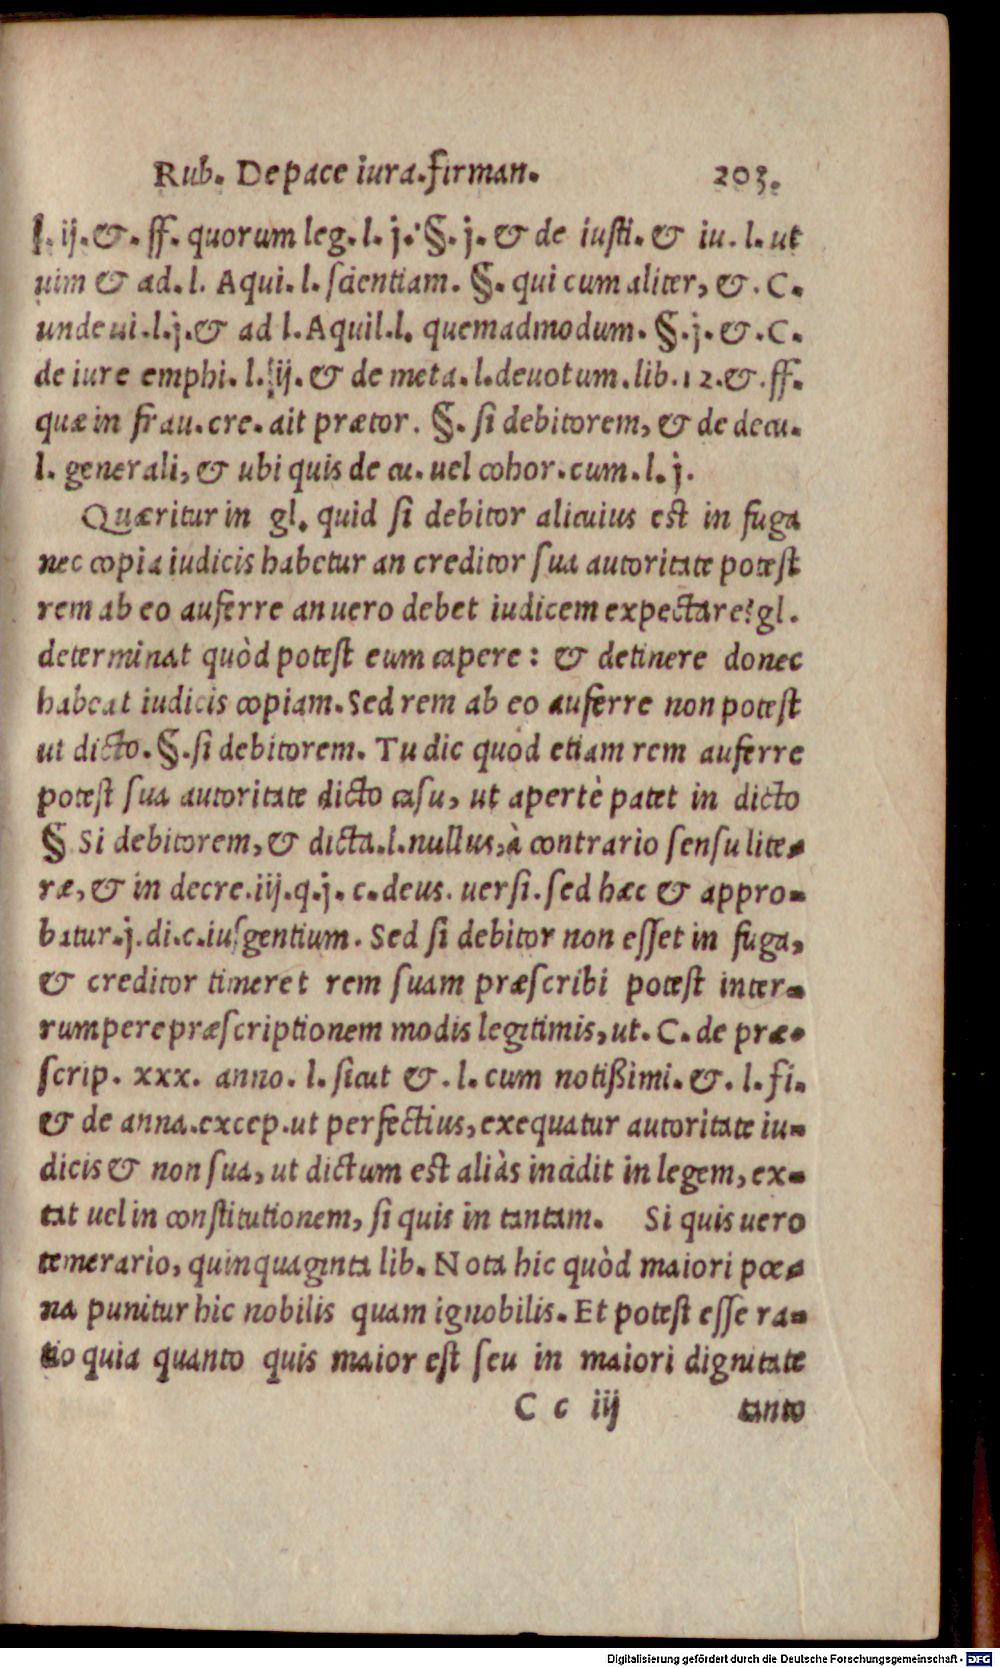 Rub. De pace iura. firman. 203.
l. ij. & . ff. quorum leg. l. j. §. j. & de iusti. & iu. l. ut
uim & ad. l. Aqui. l. scientiam. §. qui cum aliter, & . C.
unde ui. l. j. & ad l. Aquil. l. quemadmodum. §. j. & . C.
de iure emphi. l. ij. & de meta. l. deuotum. lib. 12. & . ff.
quæ in frau. cre. ait prætor. §. si debitorem, & de decu.
l. generali, & ubi quis de cu. uel cohor. cum. l. j.
Quæritur in gl. quid si debitor alicuius est in fuga
nec copia iudicis habetur an creditor sua autoritate potest
rem ab eo auferre an uero debet iudicem expectare? gl.
determinat quòd potest eum capere: & detinere donec
habeat iudicis copiam. Sed rem ab eo auferre non potest
ut dicto. §. si debitorem. Tu dic quòd etiam rem auferre
potest sua autoritate dicto casu, ut apertè patet in dicto
§ Si debitorem, & dicta. l. nullus, à contrario sensu lite-
ræ, & in decre. iij. q. j. c. deus. uersi. sed hæc & appro-
batur. j. di. c. ius gentium. Sed si debitor non esset in fuga,
& creditor timeret rem suam præscribi potest inter-
rumpere præscriptionem modis legitimis, ut. C. de præ-
scrip. xxx. anno. l. sicut & . l. cum notißimi. & . l. fi.
& de anna. excep. ut perfectius, exequatur autoritate iu-
dicis & non sua, ut dictum est aliàs incidit in legem, ex-
tat uel in constitutionem, si quis in tantam. Si quis uero
temerario, quinquaginta lib. Nota hic quòd maiori pœ-
na punitur hic nobilis quam ignobilis. Et potest esse ra-
tio quia quanto quis maior est seu in maiori dignitate
C c iij tanto
Digitalisierung gefördert durch die Deutsche Forschungsgemeinschaft - DFG